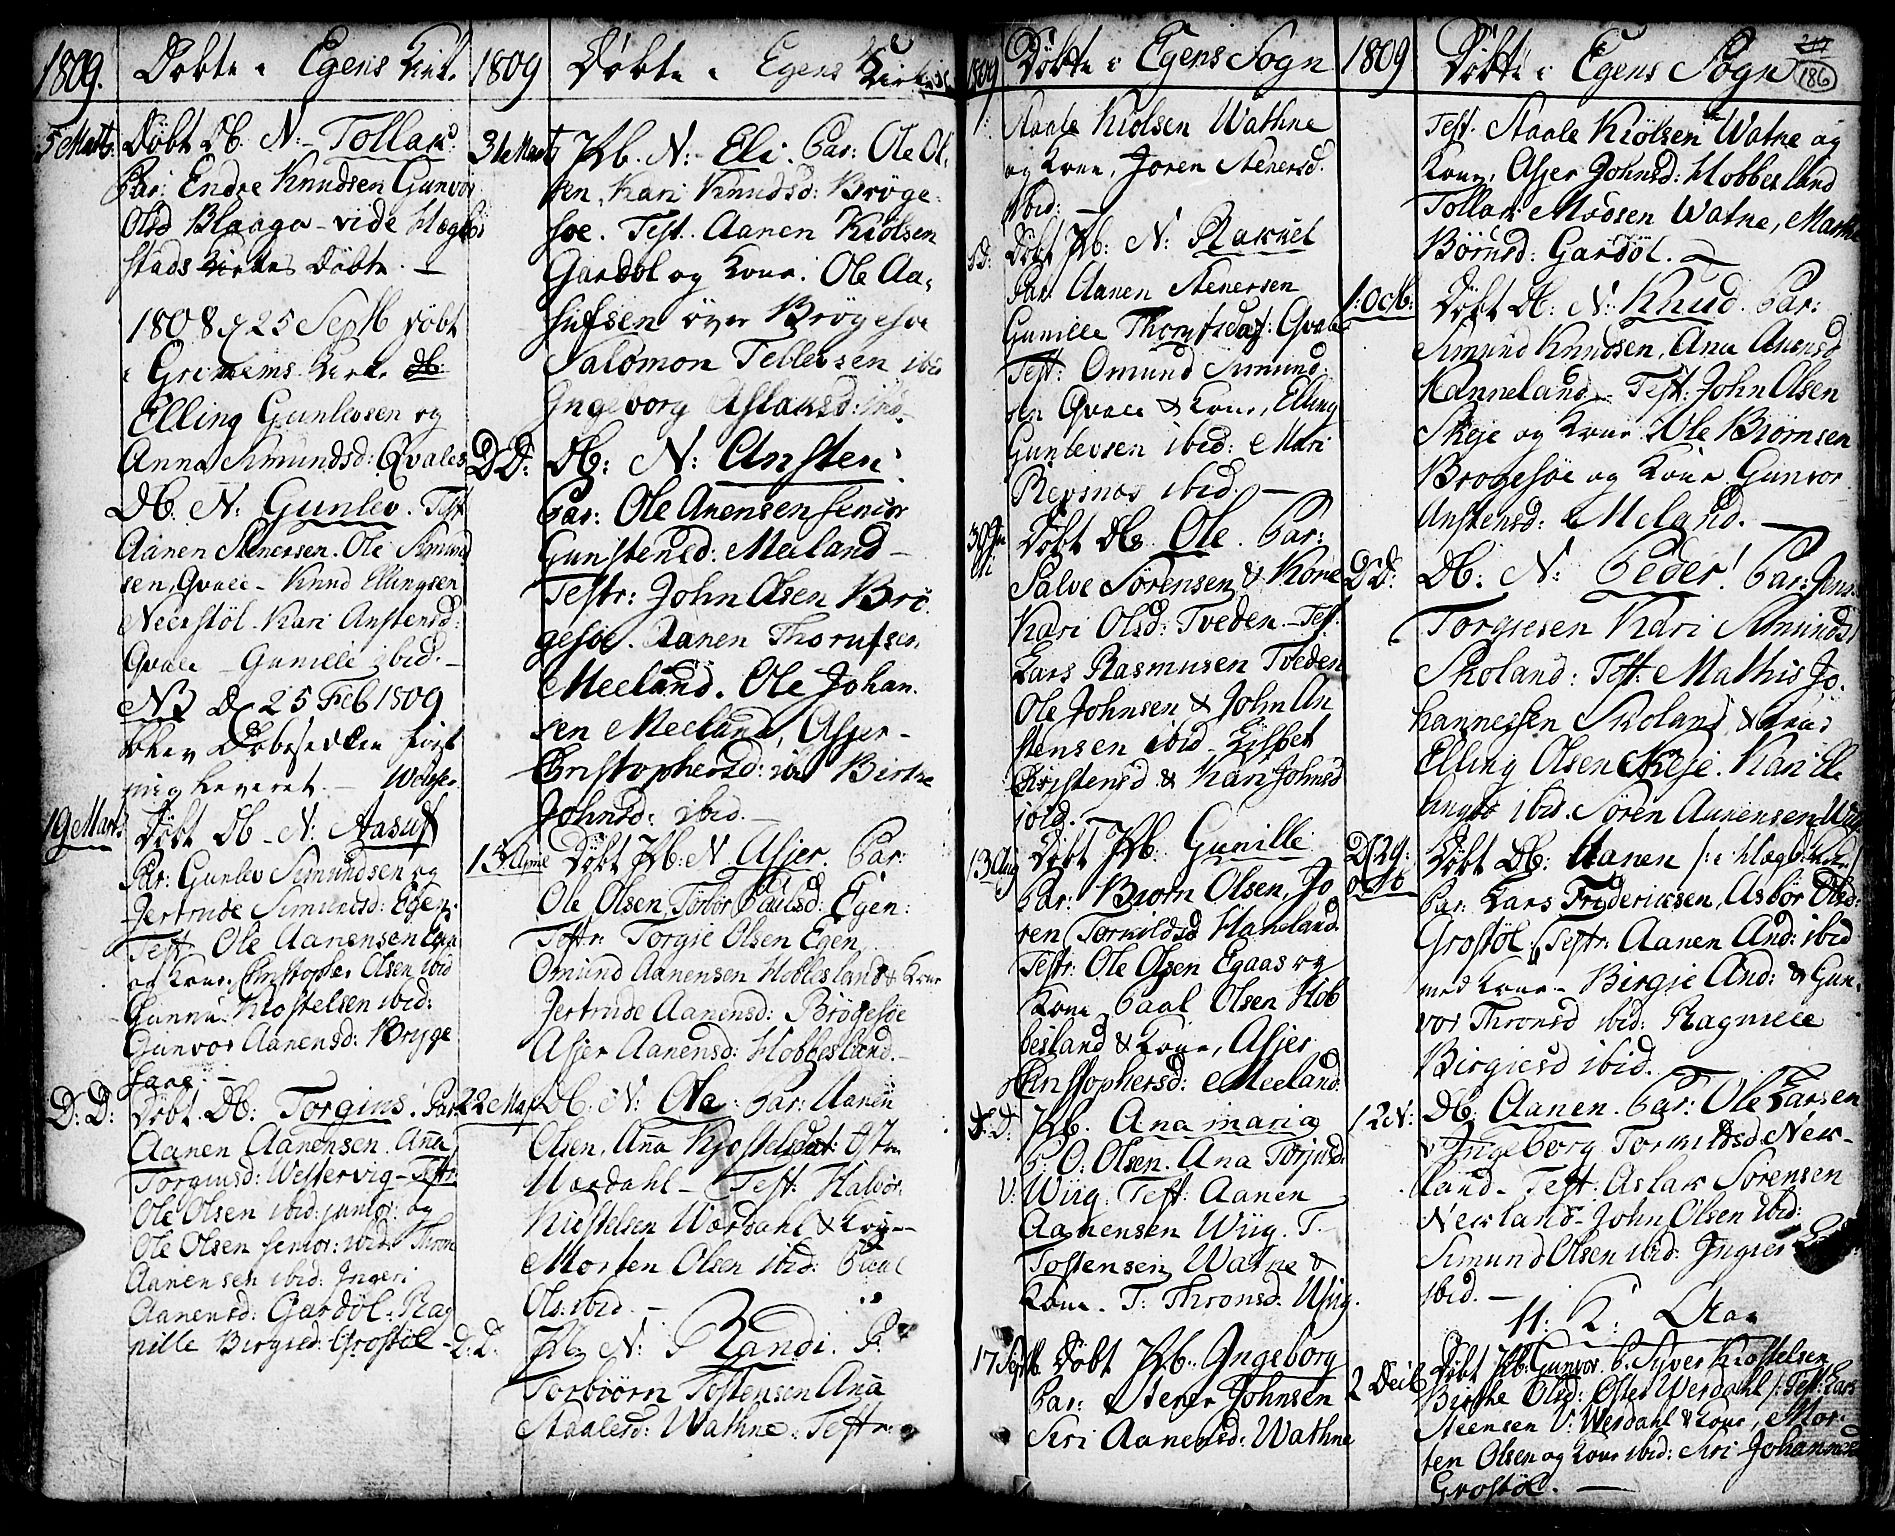 1809. Döbte i Egens Kirke
5 Marti: Döbt Db. N: Tollak.
Par: Endre Knudsen Gunvor
Olsd Blaaga vide Hægbo
stads Kirkes Döbte. —
1808 d 25 Septb döbt
i Grinems Kirke
Elling Gunlevsen og
Anna Simundsd: Qvales
Db. N: Gunlev. Test
Aanen Stenersen. Ole Simund
sen, Qvale – Knud Ellingsen
Kari Anstensd:
Qvale – Gunille ibid. –
NB D. 25 Feb 1809
blev Döbesedlen först
mig leveret. –
19 Marts Döbt Db – N: Aasuf
Par: Gunlev Simundsen og
Jertrude Simundsd: Egen.
Test Ole Aanensen Egen
og Kone, Christopher Olsen ibid
Gunnu. Kiostelsen ibid:
Gunvor Aanensd: Brygge
saae: –
D: D: Döbt. Db: Torgius. Par
Aanen Aanensen. Anna
Torgiusd: Westervig – Testr:
Ole Olsen ibid: junior: og
Ole Olsen senior: ibid Thron
Aanensen ibid: Ingeri
Aanensd: Gardöl. Rag
nille Birgied: Grostöl –
1809 Döbte i Egens Kirke
31 Marti Pb. N: Eli. Par: Ole Ol.
sen, Kari Knudsd: Bröge
söe. Test. Aanen Kiölsen
Gardöl og Kone. Ole Aa,
sufsen över Brögesöe
Salomon Tellevsen ibid
Ingeborg Aslaksd: ibid
D D: Db: N: Ansten
Par: Ole Anensen senior
Gunstensd: Meeland –
Testr: John Olsen Brö
gesöe. Aanen Thorufsen
Meeland. Ole Johan
sen Meeland, Asjer –
Christophersd: ibid Birthe
Johnsd: ibid. –
Döbt Pb: N Asjer. Par:
Ole Olsen, Torbör Paulsd: Egen:
Testr: Torgie Olsen Egen
Omund Aanensen Hobbesland & Kone
Jertrude Aanensd: Brögesöe
Asjer Aanensd: Hobbesland. –
22 Maj Db: N: Ole. Par: Aanen
Olsen, Anna Kjostelsdat: Östre
Werdahl – Test: Halvor
Kiostelsen Werdahl & Kone –
Morten Olsen ibid: Paal
Ols: ibid. –
D. D. Pb. N: Randi. P:
Torbiörn Tostensen Ana
Staalesd: Wathne: Testr:
1809 Döbte i Egens Sogn
Staale Kiölsen Wathne
og Kone, Joren Stenersd.
ibid: –
D: Döbt Pb: N: Rakuel
Par: Aanen Stenersen
Gunille Qvale
Test: Omund Simund
sen Qvale & Kone, Elling
Gunlevsen ibid: Mari
Repsnos ibid. –
Döbt Db Ole. Par:
Salve Sörensen & Kone
Kari Olsd: Tveden. – Test.
Lars Rasmusen Tveden
Ole Johnsen & John An
stensen ibid – Lisbet
Christensd & Kari Johnsd
ibid. –
13 Aug Döbt Pb. Gunille
Par: Biorn Olsen, Jo
ren Torkildsd Haneland.
Testr: Ole Olsen Egaas og
Kone Paal Olsen Hob
besland & Kone, Asjer
Christophersd: Meeland.
D: Pb. Ana maria
P. O: Olsen. Ana Torjusd.
V: Wiig. Test: Aanen
Aanensen Wiig. T.
Tostensen Watne &
Kone. T: Thronsd. Wiig.
17 Septb Döbt Pb. Ingeborg
Par: Stener Johnsen
Siri Aanensd: Wathne
1809 Döbte i Egens Sogn 186
Test. Staale Kiölsen Watne og
Kone, Asjer Johnsd: Hobbesland
Tollak Madsen Watne, Marthe
Börusd: Gardöl. –
1: Octb: Döbt Db: N: Knud. Par:
Simund Knudsen, Ana Anensd
Hanneland – Test: John Olsen
Skeje og Kone. Ole Biornsen
Brogesöe og Kone Gunvor
Anstensd: Meland. –
D D: Db: N: Peder! Par: Jens
Torgiesen Kari Simunds
Skoland: Test: Mathis Jo:
hannessen Skoland & Kone
Elling Olsen Skeje. Kari
ibid. Sören Aanensen
D 29: Octb Döbt Db: Aanen
Par: Lars Friderichsen, Asbör Olsd:
Grostöl. Testr: Aanen And: ibid
med Kone – Birgie And: & Gun
vor Thronsd ibid: Ragnille
Birgiesd ibid. –
12 N: Db: Aanen. Par: Ole Larsen
Ingeborg
land – Test: Aslak Sörensen
Newland – John Olsen ibid:
Simund Olsen ibid: Ingier
ibid. –
H. K:
2 Decb Döbt Pb: Gunvor. P. Syver Kiostelsen
Birthe Olsd: Öster Werdahl. Test: Lars
Steensen V: Werdahl & Kone, Mor
ten Olsen og Kone ibid: Siri Johannesd
Grostöl. –